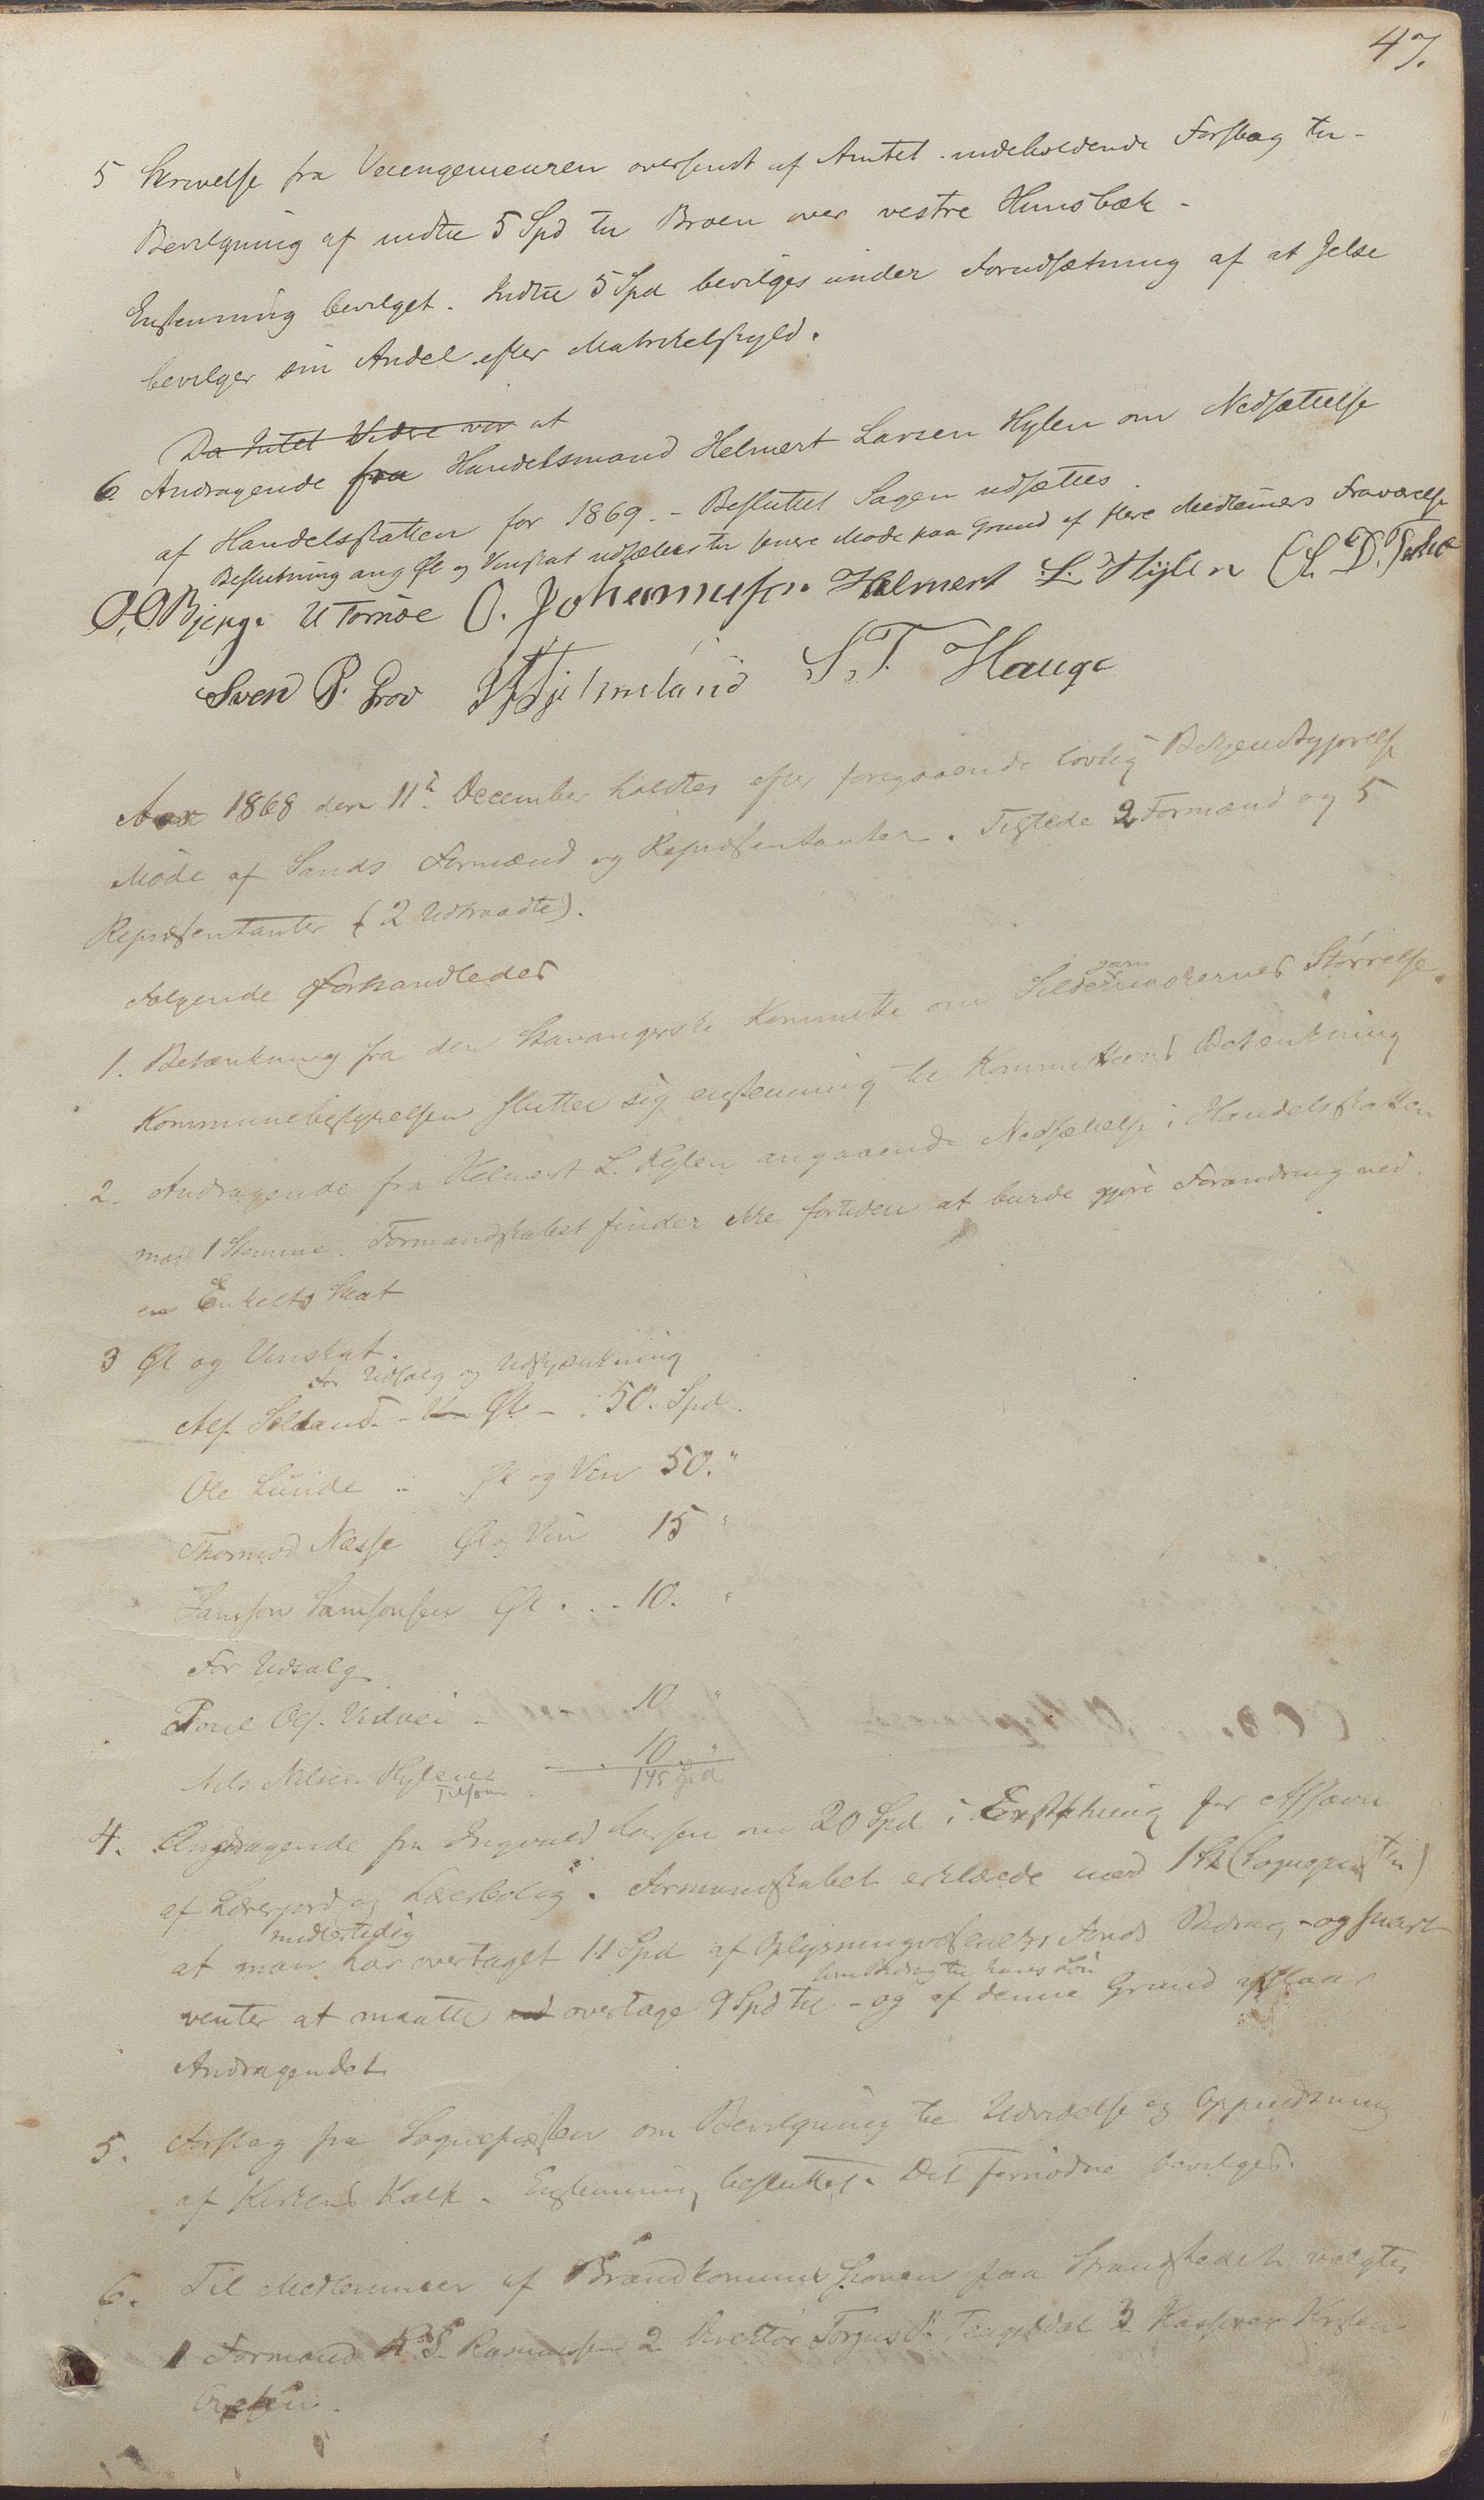 47.
5 Skrivelse fra Veiengenieuren oversendt af Amtet indeholdende Forslag til
Bevilgning af indtil 5 Spd til Broen over vestre Hunsbæk -
Enstemmig bevilget. Indtil 5 Spd bevilges under Forudsætning af at Jelse
bevilger sin Andel efter Matrikelskyld.
Da Intet Videre var at
6. Andragende fra Handelsmand Helmert Larsen Hylen om Nedsættelse
af Handelsskatten for 1869. - Besluttet Sagen udsættes.
Beslutning ang Øl og Vinskat udsættes til senere Møde paa Grund af flere Medlemers Fraværelse
O. O. Bjerge U Tornøe O. Johannesen Helmert L. Hylen Ch. D.
Sven P. Grov Hjelmeland S. T. Hauge
Aar 1868 den 11te December holdtes efter foregaaende lovlig Bekjendtgjørelse
Møde af Sands Formænd og Repræsentanter. Tilstede 2 Formænd og 5
Repræsentanter (2 Udtraadte).
Følgende forhandledes
1. Betænkning fra den Stavangerske Kommitte om Sildegarnmaskernes Størrelse.
Kommunebestyrelsen slutter sig enstemmig til Kommitteens Betænkning
2. Andragende fra Helmert L. Hylen angaaende Nedsættelse i Handelsskatten
mod 1 Stemme. Formandskabet finder ikke fortiden at burde gjøre Forandring ved
en Enkelts Skat
3 Øl og Vinskat.
for Udsalg og Udskjænkning
Alf Selland - Vin Øl - 50. Spd.
Ole Lunde .. Øl og Vin 50. "
Thormod Næsse Øl og Vin 15 "
Samson Samsonsen Øl . . - 10. "
For Udsalg
Poul Ols. Vidvei - 10 "
Nils Nilsen Hylen - . 10. "
Tilsam 145 Spd
4. Andragende fra Ingvald Larsen om 20 Spd i Erstatning for Afsavn
af Lærerjord og Lærerbolig. Formandskabet erklærede mod 1 St (Sognepræsten)
at man midlertidig har overtaget 11 Spd af Oplysningvæsenets Fonds Bidrag - og snart
venter at maatte overtage 9 Spd til som Bidrag til hans Løn - og af denne Grund afslaar
Andragendet
5. Forslag fra Sognepræsten om Bevilgning til Udvidelse og Oppudsning
af Kirkens Kalk. Enstemmig besluttet. Det fornødne bevilges.
6. Til Medlemmer af Brandkommissionen paa Strandstedet valgtes
1 Formand R. S. Rasmussen 2 Direktør Torgus P. 3. Kasserer